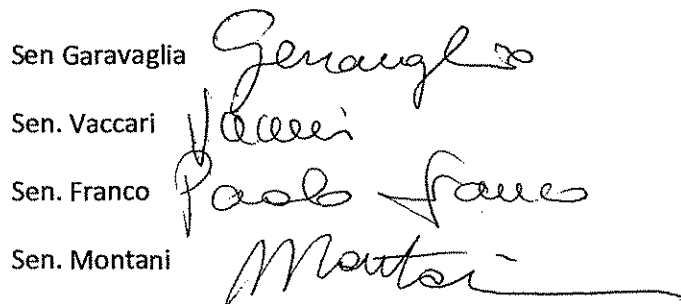 Sen Garavaglia Garavaglia
Sen. Vaccari Vaccari
Sen. Franco Paolo Franco
Sen. Montani Montani